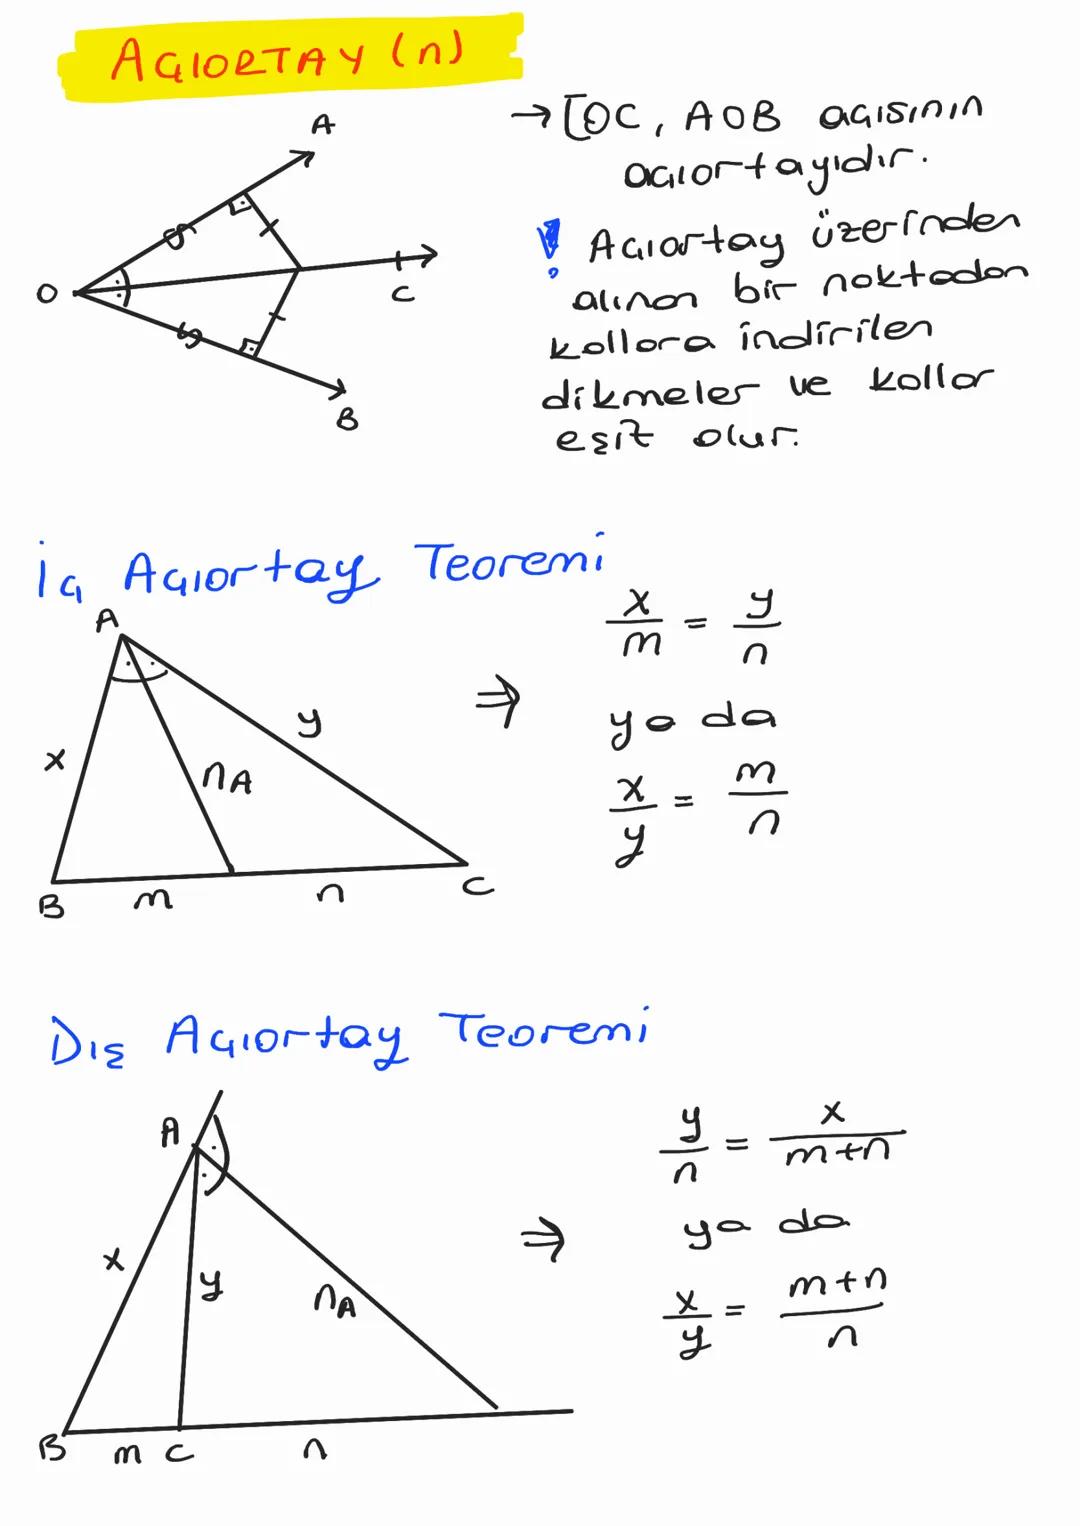 AÇIORTAY (n)
→ [OC, AOB açısının
açıortayıdır.
! Açıortay üzerinden
alınan bir noktadan
kollara indirilen
dikmeler ve kollar
eşit olur.
A
O
C
B
İç Açıortay Teoremi
A
x
y
nA
B
m
n
C
⇒
x/m = y/n
ya da
x/y = m/n
Dış Açıortay Teoremi
A
x
y
nA
B
m
C
n
⇒
y/n = x/m+n
ya da
x/y = m+n/n